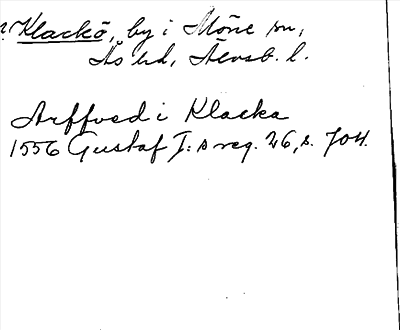 Klackö, by i Möne sn,
Ås hd, Älvsb. l.
Arffved i Klacka
1556 Gustaf I:s reg. 26, s. 704.